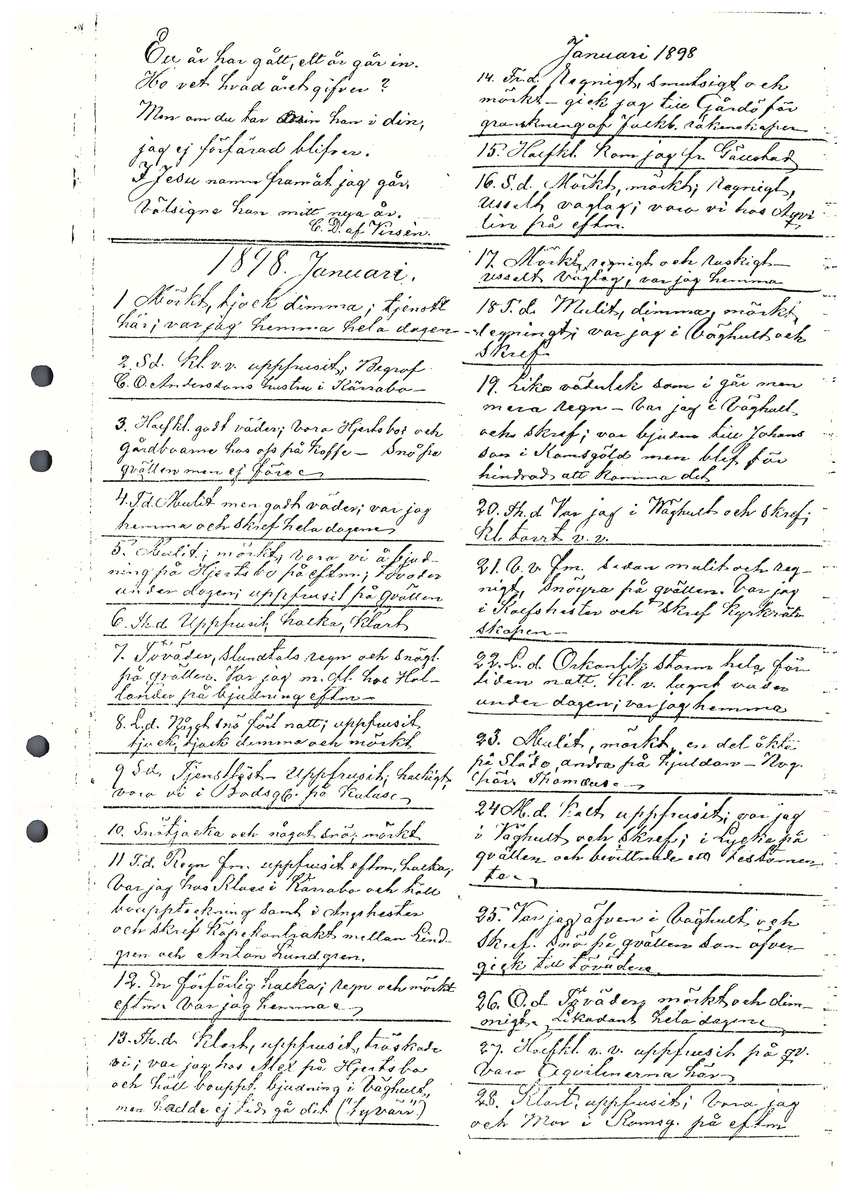 Ett år har gått, ett år går in.
Ho vet hvad året gifver?
Men om du tar min han i din,
jag ej förfärad blifver.
I Jesu namn framåt jag går,
Välsigne han mitt nya år.
C. D. af Virsén.
1898. Januari.
1 Mörkt, tjock dimma; tjenst
här; var jag hemma hela dagen
2. Sd. Kl. v.v. uppfrusit; Begrof
C. O. Anderssons hustru i Kärrabo
3. Halfkl. godt väder; voro Hjertsbos och
gårdboarne hos oss på Kaffe – Snö på
qvällen men ej före
4. T.d. Mulit men godt väder; var jag
hemma och skref hela dagen
5. Mulit; mörkt; voro vi å bjud-
ning på Hjertsbo på eftm.; töväder
under dagen; uppfrusit på qvällen
6. Th.d Uppfrusit, halka, klart
7. Töväder, stundtals regn och snögl.
på qvällen. Var jag m. fl. hos Hol-
lander på bjudning eftm –
8. L.d. Något snö förl. natt; uppfrusit
tjock, tjock dimma och mörkt
9 Sd. Tjenstlöst – Uppfrusit; halkigt,
voro vi i på Kalas
10. och något snö; mörkt
11 T.d. Regn fm. uppfrusit eftm, halka;
Var jag hos Klaes i Kärrabo och höll
bouppteckning samt i Angshester
och skref Köpekontrakt mellan Lind-
gren och Anton Lundgren.
12. En förfärlig halka; regn och mörkt
eftm. Var jag hemma
13. Th.d. Klart, uppfrusit, tröskade
vi; var jag hos på Hjertsbo
och höll bouppt. bjudning i Våghult
men hadde ej tid gå dit ("tyvärr")
Januari 1898
14. Fr.d. Regnigt, smutsigt och
mörkt – gick jag till Gårdö för
granskning af räkenskaper
15. Halfkl. Kom jag fr.
16. S.d. Mörkt, mörkt; regnigt,
usselt väglag; voro vi hos Aqvi
lin på eftm.
17. Mörkt, regnigt och ruskigt
usselt väglag, var jag hemma
18 T.d. Mulit, dimma, mörkt,
regnigt; var jag i Våghult och
skref
19. Lika väderlek som i går men
mera regn – Var jag i Våghult
och skref; var bjuden till Johans
son i Ramsgöld men blef för
hindrad att komma dit
20. Th.d Var jag i Wåghult och skref;
Kl. torrt v. v.
21. V. v. fm. sedan mulit och reg-
nigt, snöyra på qvällen. Var jag
i Kalfshester och skref Kyrkräken
skapen –
22. L. d. Orkanlik storm hela för
liden natt. Kl. v. lugnt väder
under dagen; var jag hemma
23. Mulit, mörkt, en del åkte
på Släde, andra på hjuldon –
här. Thomæus
24 M.d. Kalt uppfrusit; var jag
i Våghult och skref; i Lycke på
qvällen och bevittnade ett testamen
te
25. Var jag äfven i Våghult och
skref. snö på qvällen som öfver-
gick till töväder
26. O.d Töväder, mörkt och dim-
migt. Likadant hela dagen
27. Halfkl. v. v. uppfrusit på qv.
Voro Aqvilinerna här
28. Klart, uppfrusit; Voro jag
och Mor i Ramsg. på eftm